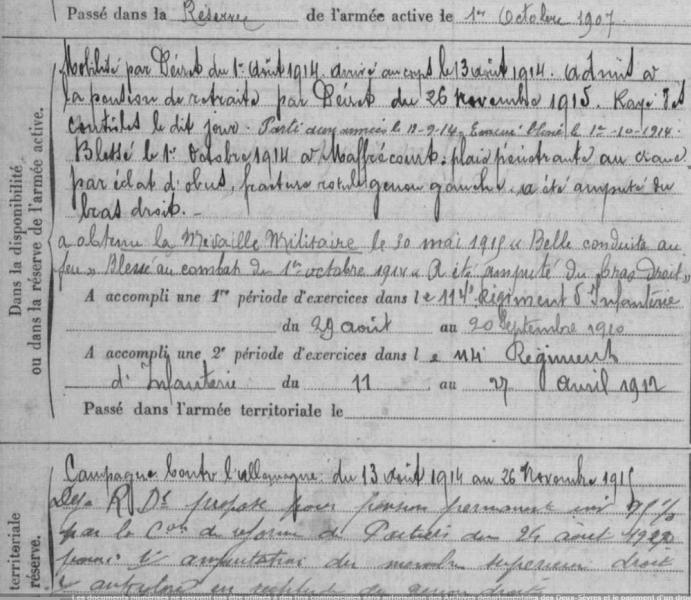 Passé dans la Réserve de l'armée active le 1er Octobre 1907.
Dans la disponibilité
ou dans la réserve de l'armée active.
Mobilisé par Décret du 1er Août 1914. arrivé au corps le 13 août 1914. Admis a
la pension de retraite par Décret du 26 Novembre 1915. Rayé des
contrôles le dit jour. Parti aux armées le 12-9-14. Evacué blessé le 1er-10-1914.
Blessé le 1er Octobre 1914 a Maffrécourt. plaie pénétrante au crane
par éclat d'obus, fracture rotule genou gauche. a été amputé du
bras droit. -
a obtenu la Médaille Militaire le 30 mai 1915 « Belle conduite au
feu » Blessé au combat du 1er octobre 1914 « A été amputé du bras droit »
A accompli une 1re période d'exercices dans le 114e Régiment d'Infanterie
du 29 août au 20 Septembre 1910
A accompli une 2e période d'exercices dans le 114e Régiment
d'Infanterie du 11 au 27 avril 1912
Passé dans l'armée territoriale le
territoriale
réserve.
Campagne contre l'allemagne: du 13 août 1914 au 26 Novembre 1915
proposé pour pension permanente
par la Con de réforme de Poitiers du 24 août
pour: 1/ amputation du membre supérieur droit
2/ du genou droit
Les documents numérisés ne peuvent pas être utilisés à des fins commerciales sans autorisation des Archives départementales des Deux-Sèvres et le paiement d'un droit